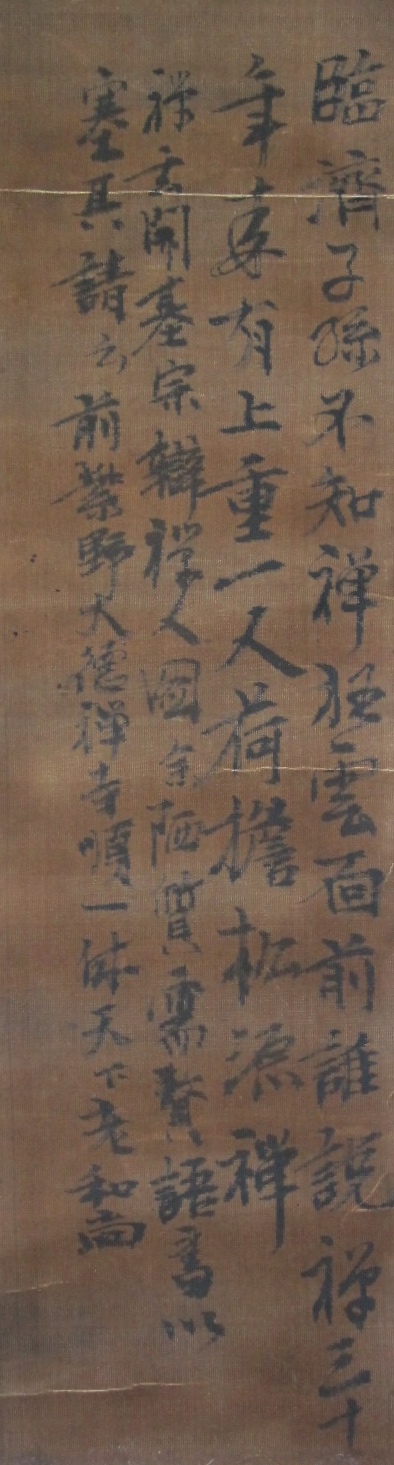 臨濟子孫不知禅狂雲面前誰説禅三十
年来肩上重一人荷擔松源禅
開基宗禅人圖余陋質需賛語書以
塞其請云前紫野大德禅寺順一休天下老和尚